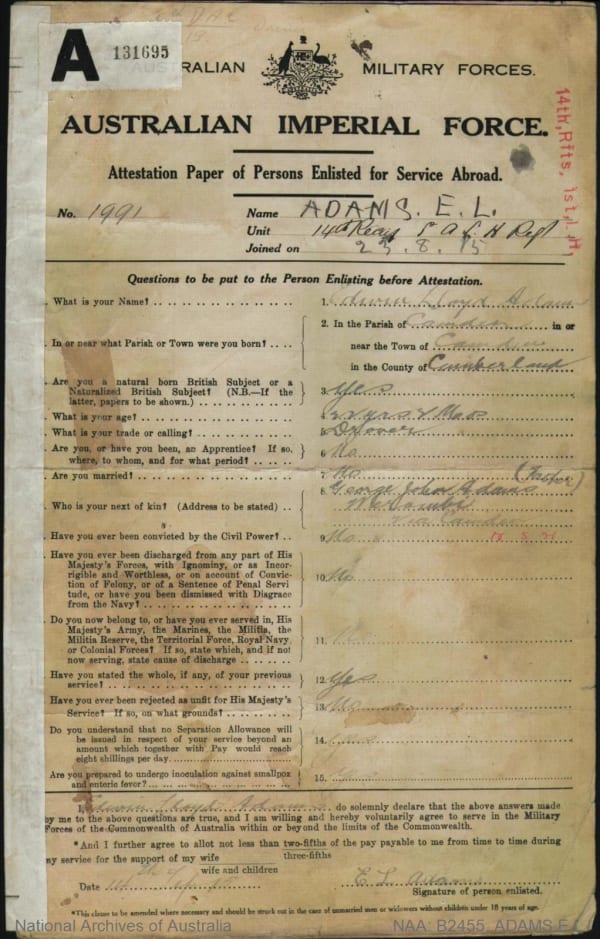 A 131695
AUSTRALIAN MILITARY FORCES.
AUSTRALIAN IMPERIAL FORCE.
14th, Rfts, 1st, L.H,
Attestation Paper of Persons Enlisted for Service Abroad.
No. 1991 Name ADAMS. E. L.
Unit 14th Reins 1 A L H Regt
Joined on 23. 8. 15
Questions to be put to the Person Enlisting before Attestation.
. What is your Name? 1. Edwin Lloyd Adams
2. In the Parish of Camden in or
. In or near what Parish or Town were you born? near the Town of Camden
in the County of Cumberland
. Are you a natural born British Subject or a
Naturalized British Subject? (N.B.—If the
latter, papers to be shown.) 3. Yes
. What is your age? 4. 22 yrs
. What is your trade or calling? 5. Drover
. Are you, or have you been, an Apprentice? If so,
where, to whom, and for what period? 6. No
. Are you married? 7. No
(Father)
. Who is your next of kin? (Address to be stated) 8. George John Adams
Via Camden
. Have you ever been convicted by the Civil Power? 9. No
. Have you ever been discharged from any part of His
Majesty's Forces, with Ignominy, or as Incor-
rigible and Worthless, or on account of Convic-
tion of Felony, or of a Sentence of Penal Servi
tude, or have you been dismissed with Disgrace
from the Navy? 10. No
. Do you now belong to, or have you ever served in, His
Majesty's Army, the Marines, the Militia, the
Militia Reserve, the Territorial Force, Royal Navy
or Colonial Forces? If so, state which, and if not
now serving, state cause of discharge 11. No
Have you stated the whole, if any, of your previous
service? 12. Yes
Have you ever been rejected as unfit for His Majesty's
Service? If so, on what grounds? 13. No
Do you understand that no Separation Allowance will
be issued in respect of your service beyond an
amount which together with Pay would reach
eight shillings per day 14. Yes
Are you prepared to undergo inoculation against smallpox
and enteric fever? 15.
I, Edwin Lloyd Adams do solemnly declare that the above answers made
by me to the above questions are true, and I am willing and hereby voluntarily agree to serve in the Military
Forces of the Commonwealth of Australia within or beyond the limits of the Commonwealth.
*And I further agree to allot not less than two-fifths of the pay payable to me from time to time during
three-fifths
my service for the support of my wife
wife and children
Date E L Adams
Signature of person enlisted.
*This clause to be amended where necessary and should be struck out in the case of unmarried men or widowers without children under 18 years of age.
National Archives of Australia NAA: B2455, ADAMS E L